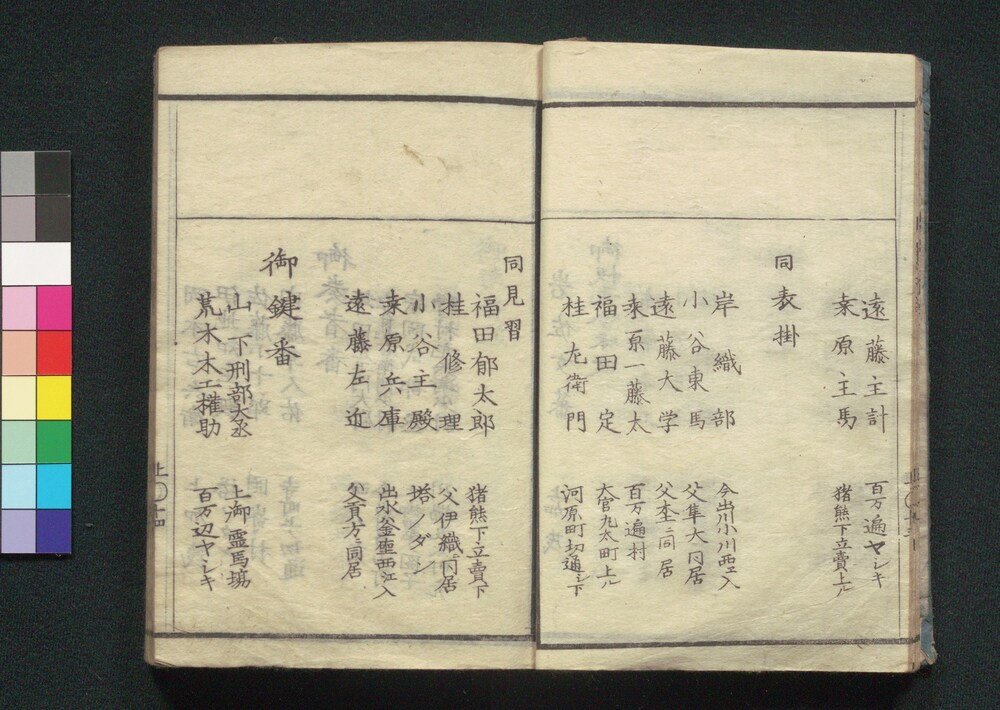 遠藤主計 百万遍ヤシキ
桒原主馬 猪熊下立賣上ル
同表掛
岸織部 今出川小川西エ入
小谷東馬 父隼大ニ同居
遠藤大学 父杢ニ同居
桒原一藤太 百万遍村
福田定 大宮丸太町上ル
桂左衛門 河原町切通シ下
同見習
福田郁太郎 猪熊下立賣下
桂修理 父伊織ニ同居
小谷主殿 塔ノダン
桒原兵庫 出水釜座西江入
遠藤左近 父貢方ニ同居
御鍵番
山下刑部大丞 上御霊馬塲
荒木木工権助 百万辺ヤシキ
上〇十四